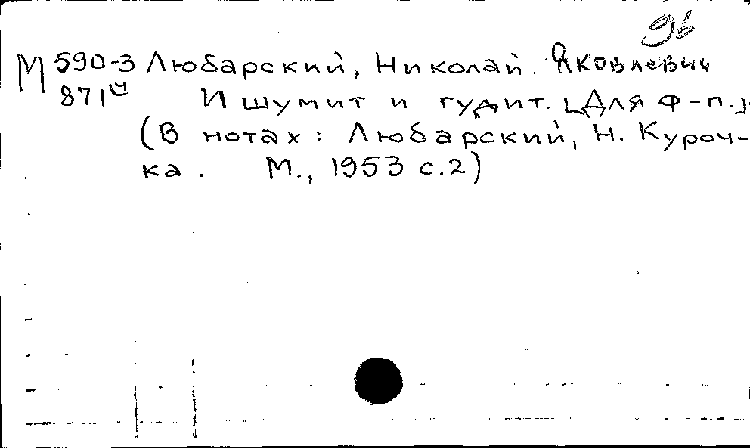 96
М 590-3 Любарский, Николай Яковлевич
871ч И шумит и гудит. [Для ф-п.]
(В нотах: Любарский, Н. Куроч-
ка. М., 1953 с.2)